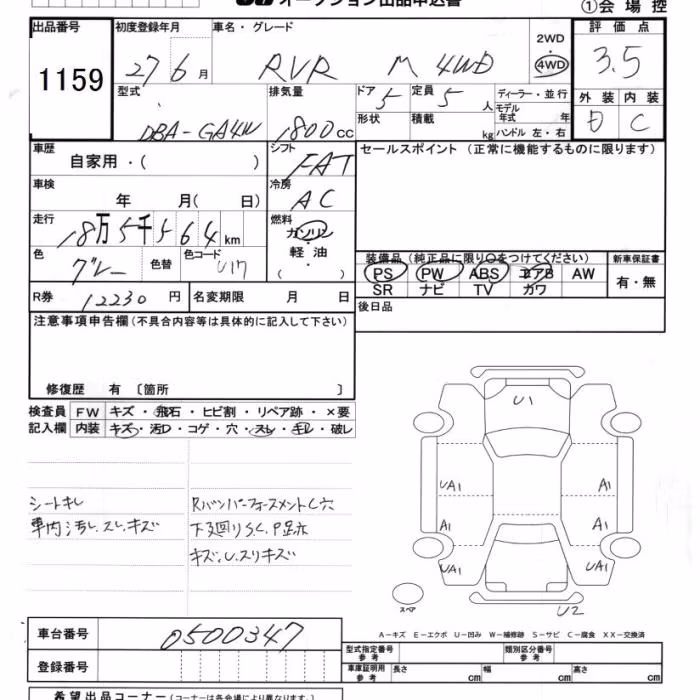 オークション出品申込書
①会場控
出品番号
1159
初度登録年月
27 6 月
車名・グレード
RVR M 4WD
2WD
4WD
評価点
3.5
外装 内装
D C
型式
DBA-GA4W
排気量
1800 cc
ドア 5
定員 5 人
形状
積載 kg
ディーラー・並行
モデル年式 年
ハンドル 左・右
車歴
自家用・( )
シフト
FAT
セールスポイント (正常に機能するものに限ります)
車検
年 月( 日)
冷房
AC
走行
18万5千564km
燃料
ガソリン
・
軽油
( ・ )
色
グレー
色替
色コード
U17
装備品 (純正品に限り○をつけてください)
PS PW ABS エアB AW
SR ナビ TV カワ
新車保証書
有・無
R券 12230 円
名変期限 月 日
後日品
注意事項申告欄(不具合内容等は具体的に記入して下さい)
修復歴 有 〔箇所 〕
検査員記入欄
FW キズ・飛石・ヒビ割・リペア跡・×要
内装 キズ・汚れ・コゲ・穴・スレ・キレ・破レ
シートキレ
車内汚レ.スレ.キズ
Rバンパーフォースメント C穴
下廻りS.C.P足赤
キズ.U.スリキズ
U1
UA1
A1
A1
A1
UA1
UA1
U2
スペア
A−キズ E−エクボ U−凹み W−補修跡 S−サビ C−腐食 XX−交換済
車台番号
0500347
登録番号
型式指定番号 参考
類別区分番号 参考
車庫証明用 参考
長さ cm
幅 cm
高さ cm
希望出品コーナー(コーナーは各会場により異なります)